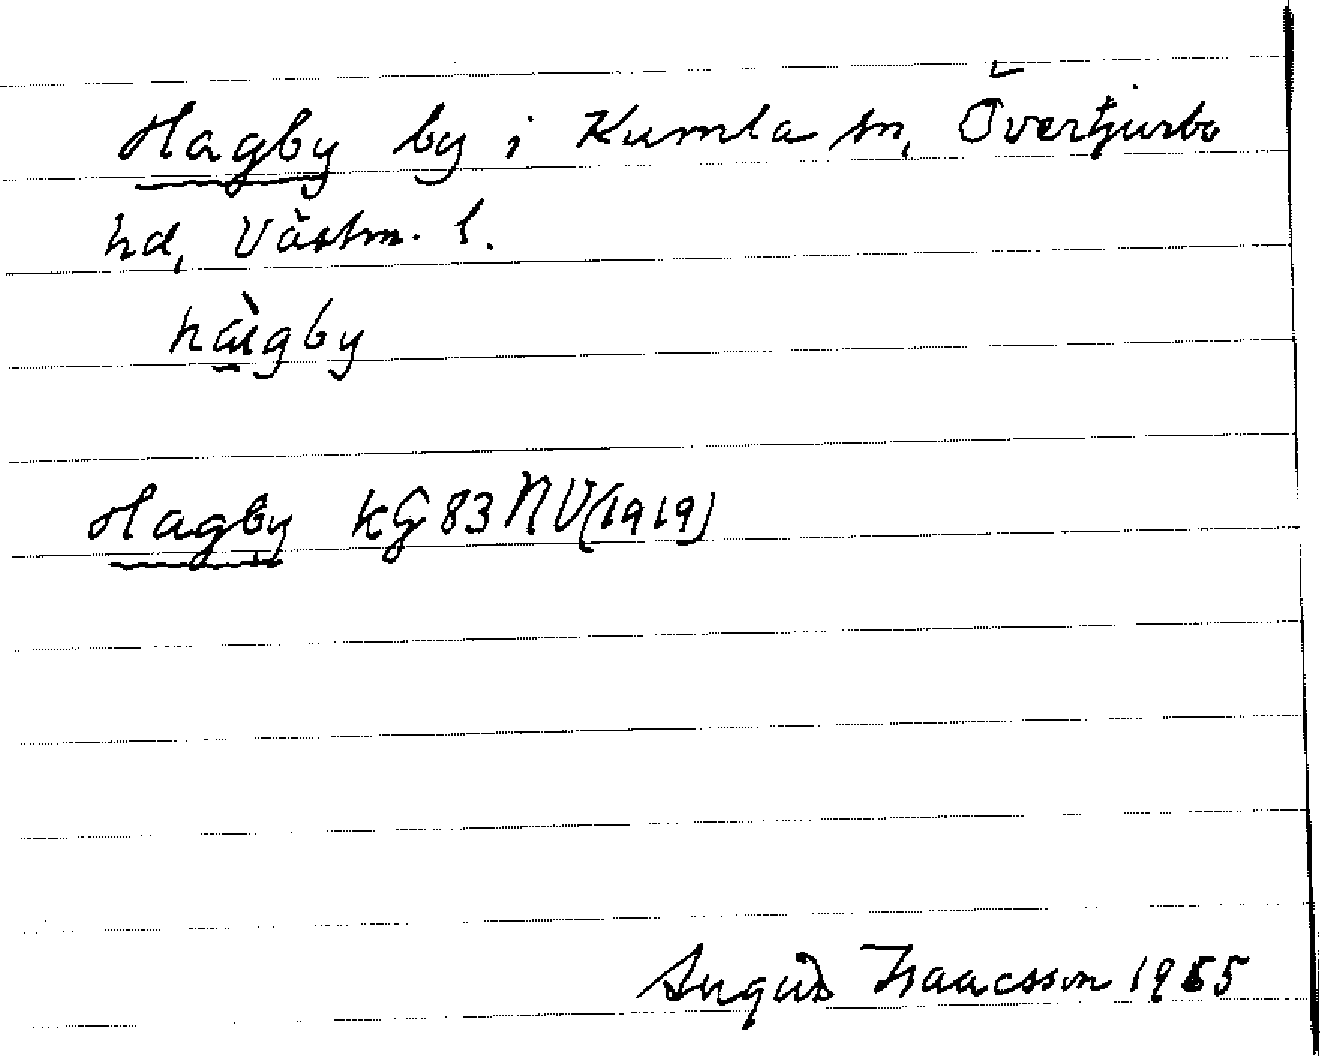 Hagby by i Kumla sn, Övertjurbo
hd, Västm. l.
hàgby
Hagby KG 83 NV (1919)
Isaacsson 1955